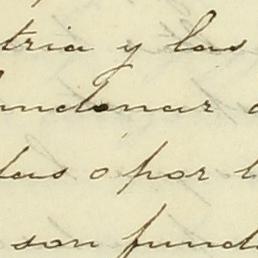 tria y las
undonar
das o por l
son fund